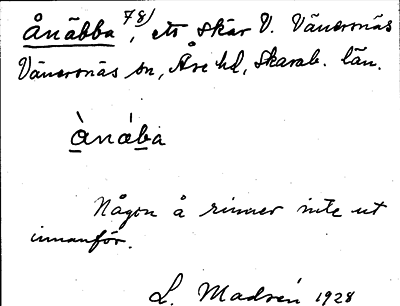 Ånäbba 78), ett skär V. Vänersnäs
Vänersnäs sn, Åse hd, Skarab. län.
ànába
Någon å rinner inte ut
innanför.
L. Madsén 1928